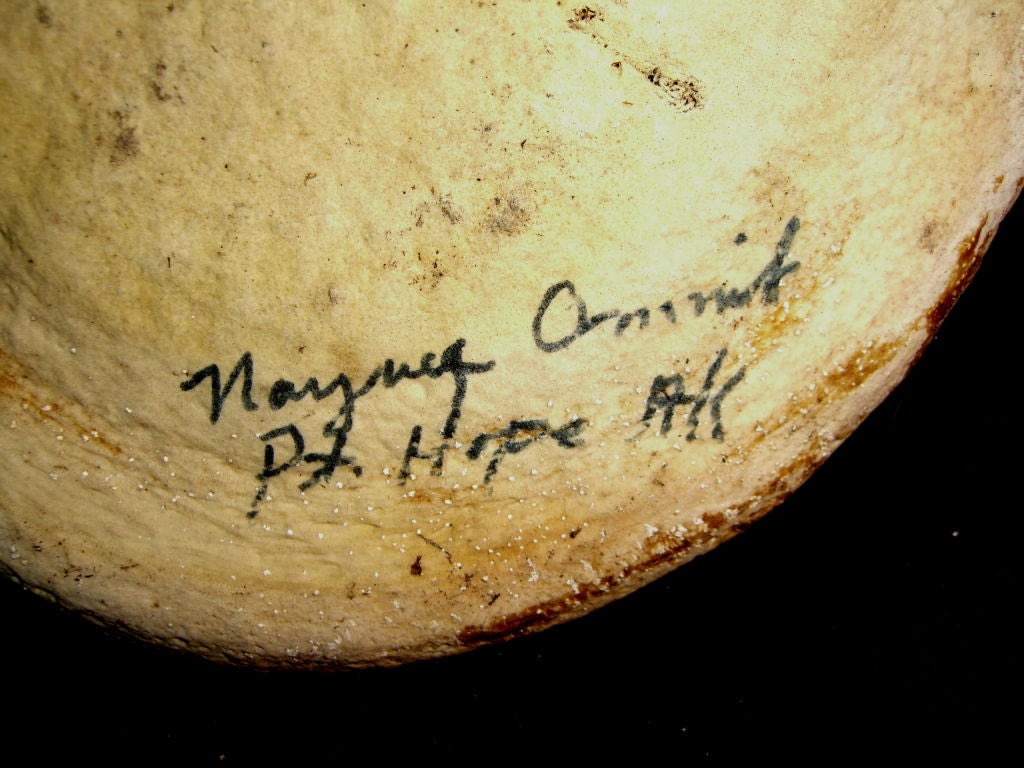 Omnik
Pt. Hope AK